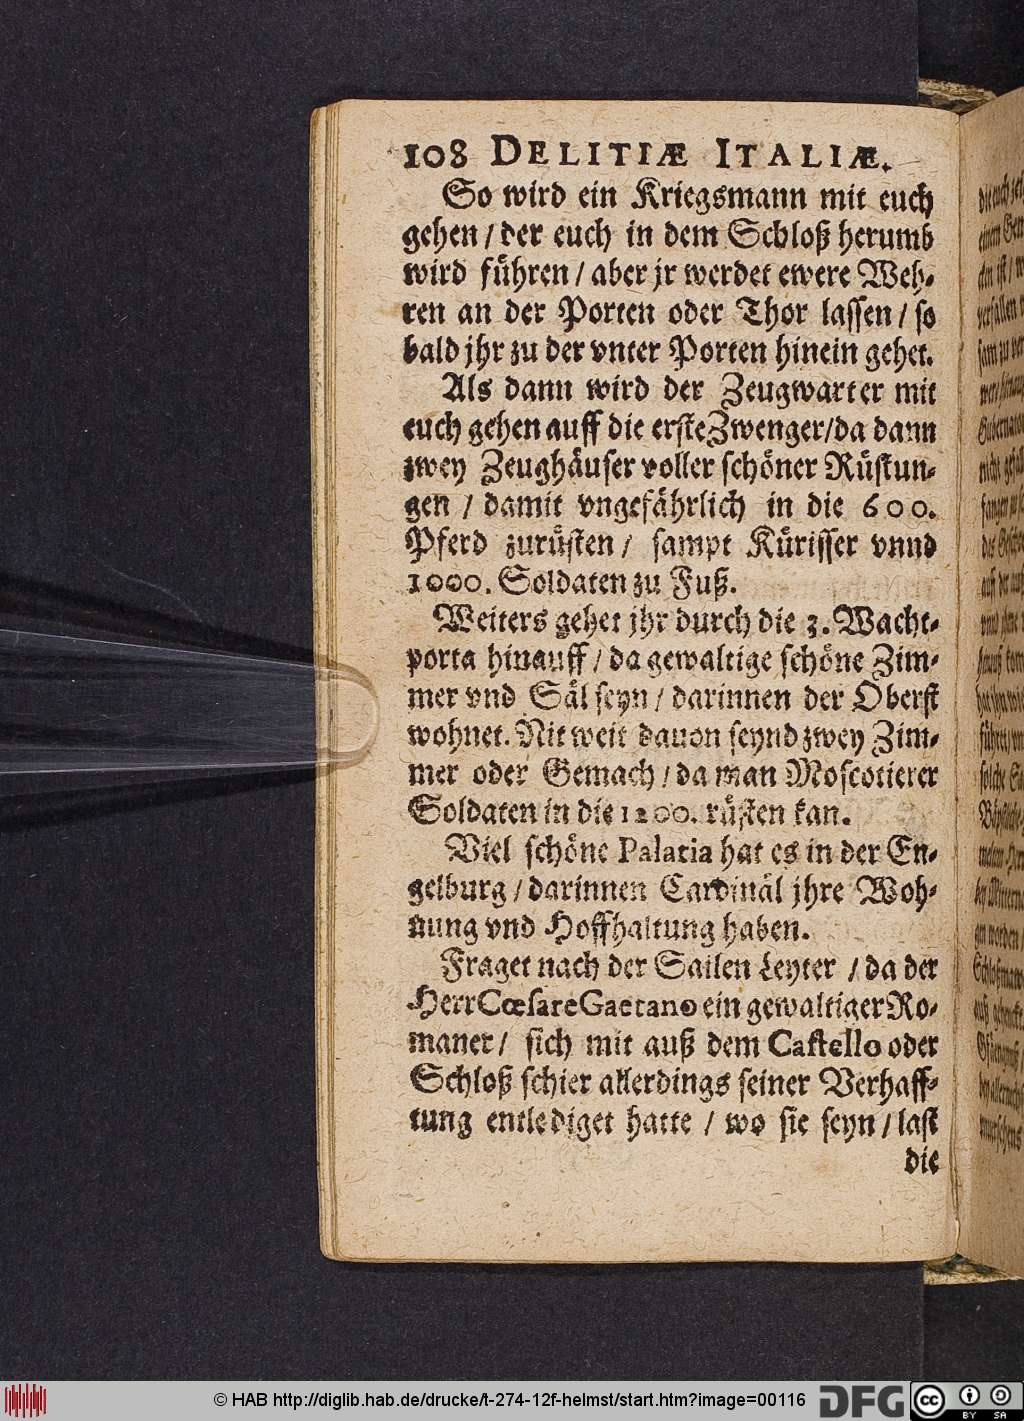 108 DELITIÆ ITALIÆ.
So wird ein Kriegsmann mit euch
gehen / der euch in dem Schloß herumb
wird führen / aber jr werdet ewere Weh-
ren an der Porten oder Thor lassen / so
bald jhr zu der vnter Porten hinein gehet.
Als dann wird der Zeugwarter mit
euch gehen auff die erste Zwenger/da dann
zwey Zeughäuser voller schöner Rüstun-
gen / damit vngefährlich in die 600.
Pferd zurüsten / sampt Kürisser vnnd
1000. Soldaten zu Fuß.
Weiters gehet jhr durch die 3. Wacht-
porta hinauff / da gewaltige schöne Zim-
mer vnd Säl seyn / darinnen der Oberst
wohnet. Nit weit dauon seynd zwey Zim-
mer oder Gemach / da man Moscotierer
Soldaten in die 1200. rüsten kan.
Viel schöne Palatia hat es in der En-
gelburg / darinnen Cardinäl jhre Woh-
nung vnd Hoffhaltung haben.
Fraget nach der Sailen Leyter / da der
Herr Cœsare Gaetano ein gewaltiger Ro-
maner / sich mit auß dem Castello oder
Schloß schier allerdings seiner Verhaff-
tung entlediget hatte / wo sie seyn / last
die
© HAB http://diglib.hab.de/drucke/t-274-12f-helmst/start.htm?image=00116
DFG
cc
BY SA